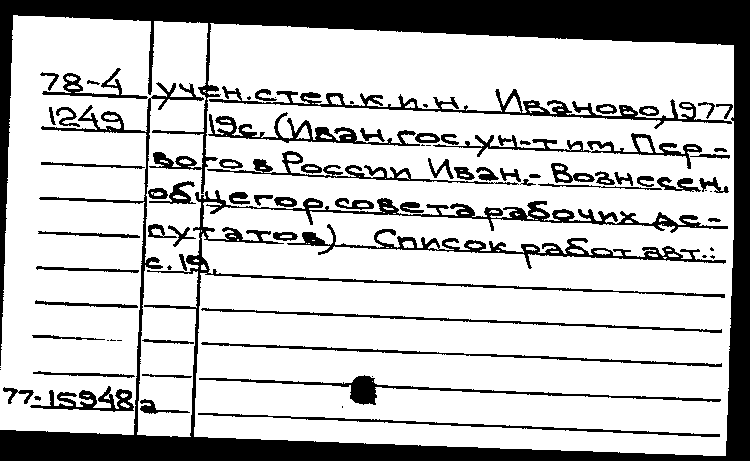 78-4 учен.степ.к.и.н. Иваново, 1977.
1249 19с. (Иван.гос.ун-т им. Пер-
вого в России Иван.-Вознесен.
общегор.совета рабочих де-
путатов) Список работ авт.:
с.19.
77-15948а